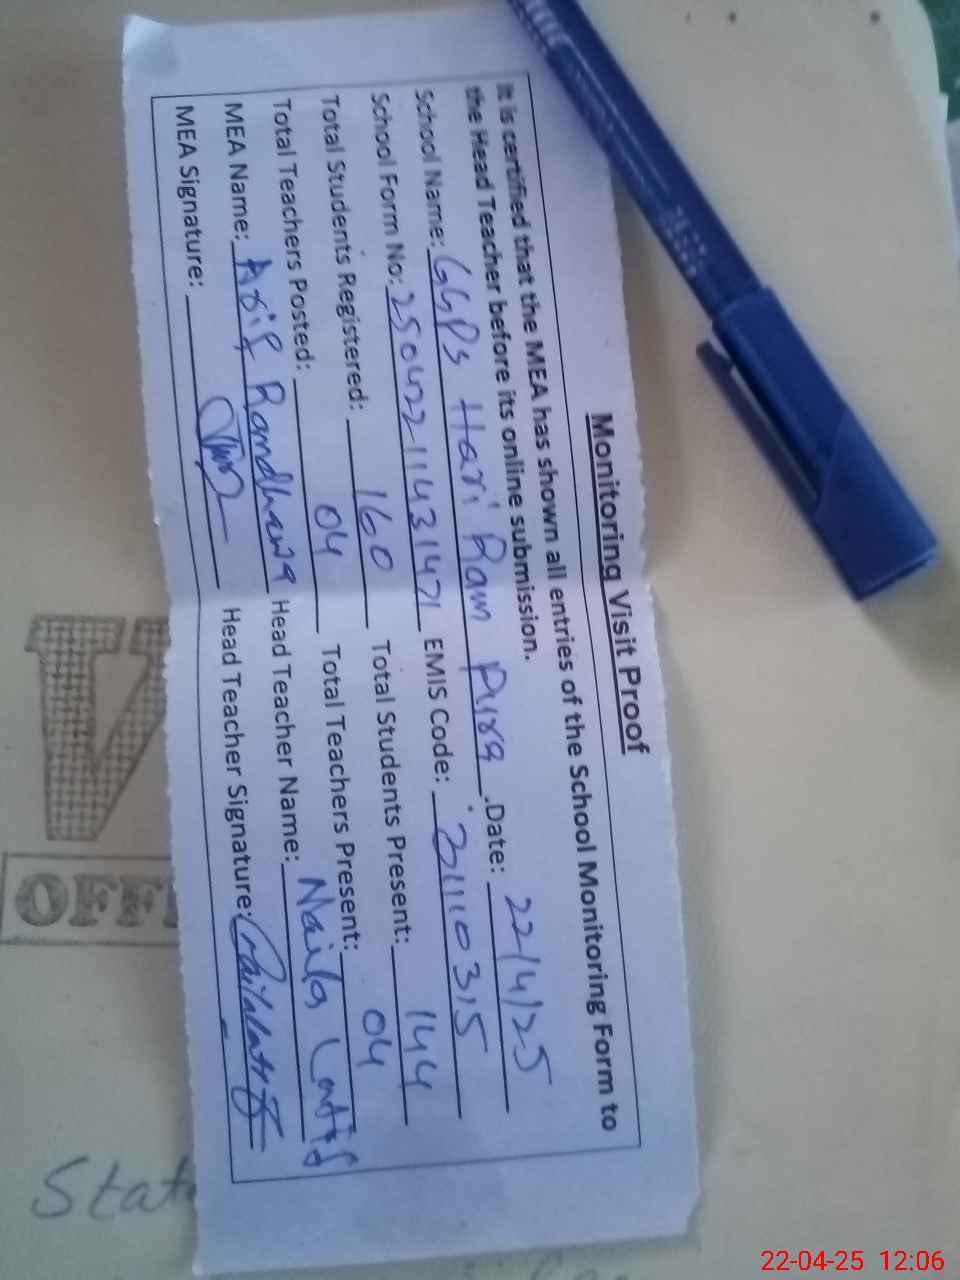 Monitoring Visit Proof
It is certified that the MEA has shown all entries of the School Monitoring Form to
the Head Teacher before its online submission.
School Name: GGPS Hari Ram Pura .Date: 22/4/25
School Form No: 2504221143147 EMIS Code: 31110315
Total Students Registered: 160 Total Students Present: 144
Total Teachers Posted: 04 Total Teachers Present: 04
MEA Name: Asif Randhawa Head Teacher Name: Naila Latif
MEA Signature: Head Teacher Signature:
OFFI
State
22-04-25 12:06